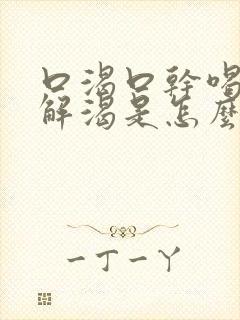 口渴口幹喝
解渴是怎麼
一丁一丫